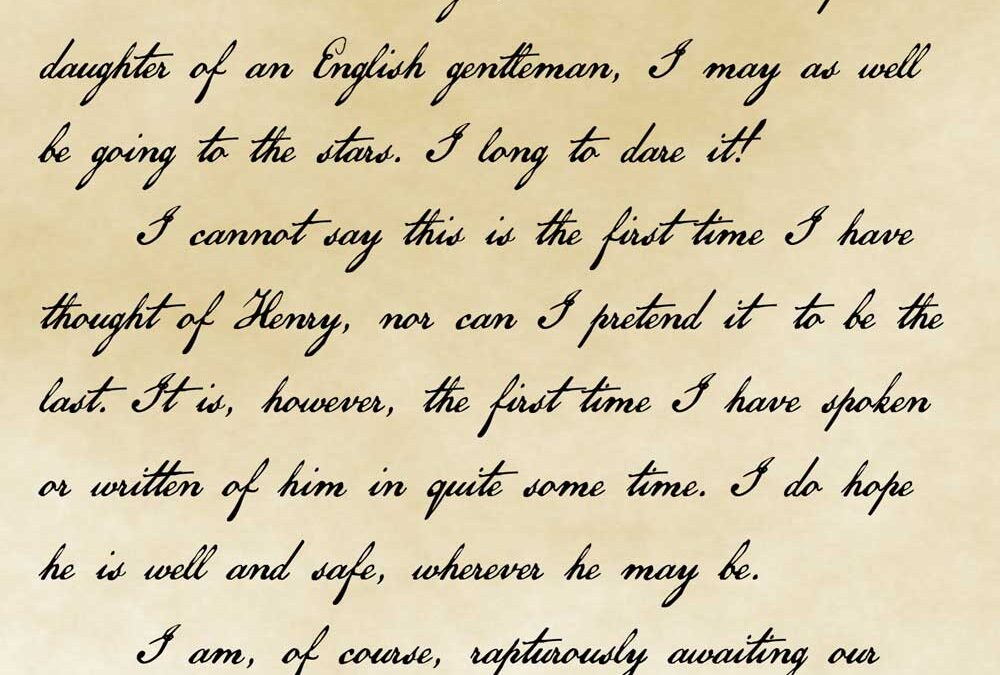 daughter of an English gentleman, I may as well
be going to the stars. I long to dare it!
I cannot say this is the first time I have
thought of Henry, nor can I pretend it to be the
last. It is, however, the first time I have spoken
or written of him in quite some time. I do hope
he is well and safe, wherever he may be.
I am, of course, rapturously awaiting our